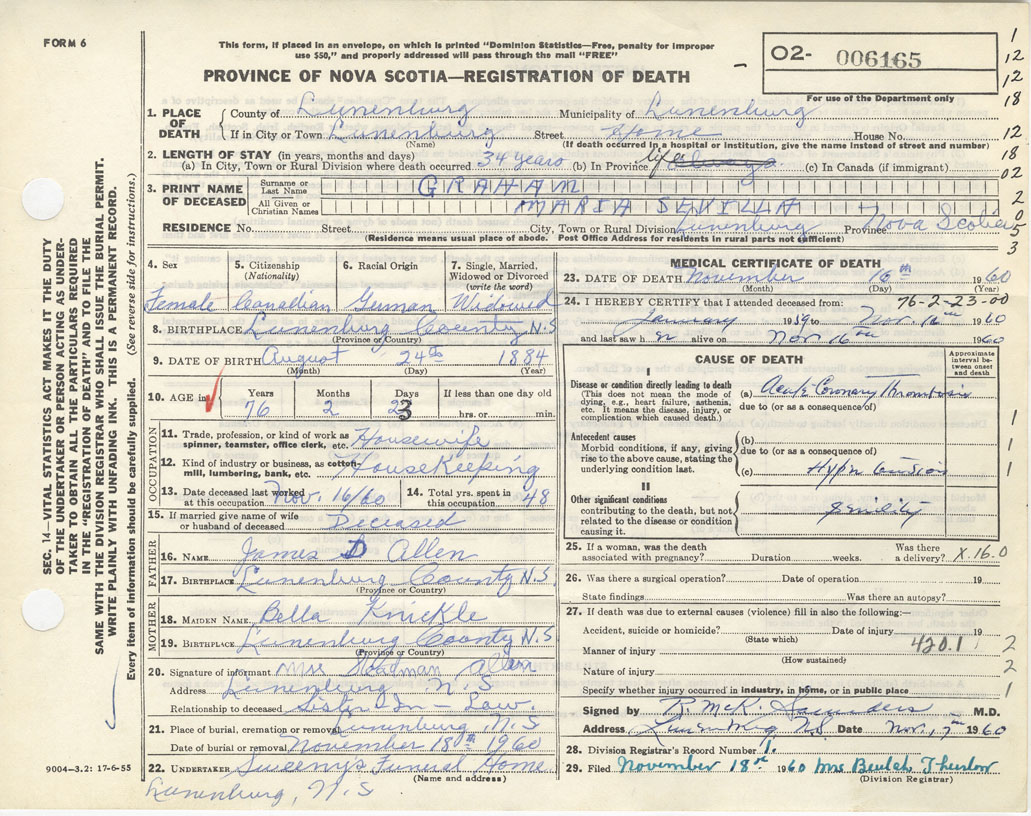 FORM 6
This form, if placed in an envelope, on which is printed "Dominion Statistics—Free, penalty for improper
use $50," and properly addressed will pass through the mail "FREE"
PROVINCE OF NOVA SCOTIA—REGISTRATION OF DEATH
02- 006165
For use of the Department only
1
12
12
18
12
18
02
2
0
5
3
SEC. 14—VITAL STATISTICS ACT MAKES IT THE DUTY
OF THE UNDERTAKER OR PERSON ACTING AS UNDER-
TAKER TO OBTAIN ALL THE PARTICULARS REQUIRED
IN THE "REGISTRATION OF DEATH" AND TO FILE THE
SAME WITH THE DIVISION REGISTRAR WHO SHALL ISSUE THE BURIAL PERMIT.
WRITE PLAINLY WITH UNFADING INK. THIS IS A PERMANENT RECORD.
Every item of information should be carefully supplied. (See reverse side for instructions.)
1. PLACE OF DEATH { County of Lunenburg Municipality of Lunenburg
If in City or Town Lunenburg Street Home House No.
(Name) (If death occurred in a hospital or institution, give the name instead of street and number)
2. LENGTH OF STAY (in years, months and days)
(a) In City, Town or Rural Division where death occurred 34 years (b) In Province life (c) In Canada (if immigrant)
3. PRINT NAME OF DECEASED { Surname or Last Name GRAHAM
All Given or Christian Names MARIA SEVILLA
RESIDENCE No. Street City, Town or Rural Division Lunenburg Province Nova Scotia
(Residence means usual place of abode. Post Office Address for residents in rural parts not sufficient)
4. Sex Female
5. Citizenship (Nationality) Canadian
6. Racial Origin German
7. Single, Married, Widowed or Divorced (write the word) Widowed
8. BIRTHPLACE Lunenburg County N.S
(Province or Country)
9. DATE OF BIRTH August 24th 1884
(Month) (Day) (Year)
10. AGE in Years Months Days If less than one day old
76 2 23 hrs. or min.
OCCUPATION
11. Trade, profession, or kind of work as spinner, teamster, office clerk, etc. Housewife
12. Kind of industry or business, as cotton mill, lumbering, bank, etc. HouseKeeping
13. Date deceased last worked at this occupation Nov. 16/60 14. Total yrs. spent in this occupation 48
15. If married give name of wife or husband of deceased Deceased
FATHER
16. NAME James D Allen
17. BIRTHPLACE Lunenburg County N.S.
(Province or Country)
MOTHER
18. MAIDEN NAME Bella Knickle
19. BIRTHPLACE Lunenburg County N.S.
(Province or Country)
20. Signature of informant Mrs Allen
Address Lunenburg N.S
Relationship to deceased Sister In-Law.
21. Place of burial, cremation or removal Lunenburg N.S
Date of burial or removal November 18th 1960
22. UNDERTAKER Sweeny's Funeral Home
(Name and address)
Lunenburg, N.S
9004–3.2: 17-6-55
MEDICAL CERTIFICATE OF DEATH
23. DATE OF DEATH November 16th 1960
(Month) (Day) (Year)
24. I HEREBY CERTIFY that I attended deceased from: 76-2-23-00
January 1959 to Nov. 16th 1960
and last saw h er alive on Nov 16th 1960
CAUSE OF DEATH
Approximate interval be-tween onset and death
I
Disease or condition directly leading to death
(This does not mean the mode of dying, e.g., heart failure, asthenia, etc. It means the disease, injury, or complication which caused death.)
(a) Acute Coronary Thrombosis
due to (or as a consequence of)
Antecedent causes
Morbid conditions, if any, giving rise to the above cause, stating the underlying condition last.
(b)
due to (or as a consequence of)
(c) Hypertension
II
Other significant conditions
contributing to the death, but not related to the disease or condition causing it.
Senility
1
1
1
25. If a woman, was the death associated with pregnancy? Duration weeks. Was there a delivery? X.16.0
26. Was there a surgical operation? Date of operation 19
State findings Was there an autopsy?
27. If death was due to external causes (violence) fill in also the following:—
Accident, suicide or homicide? Date of injury 19
(State which)
Manner of injury 420.1 2
(How sustained)
Nature of injury 2
Specify whether injury occurred in industry, in home, or in public place 1
Signed by R. McK. Saunders M.D.
Address Lunenburg N.S. Date Nov. 17 1960
28. Division Registrar's Record Number 1.
29. Filed November 18th 1960 Mrs Beulah Thurlow
(Division Registrar)